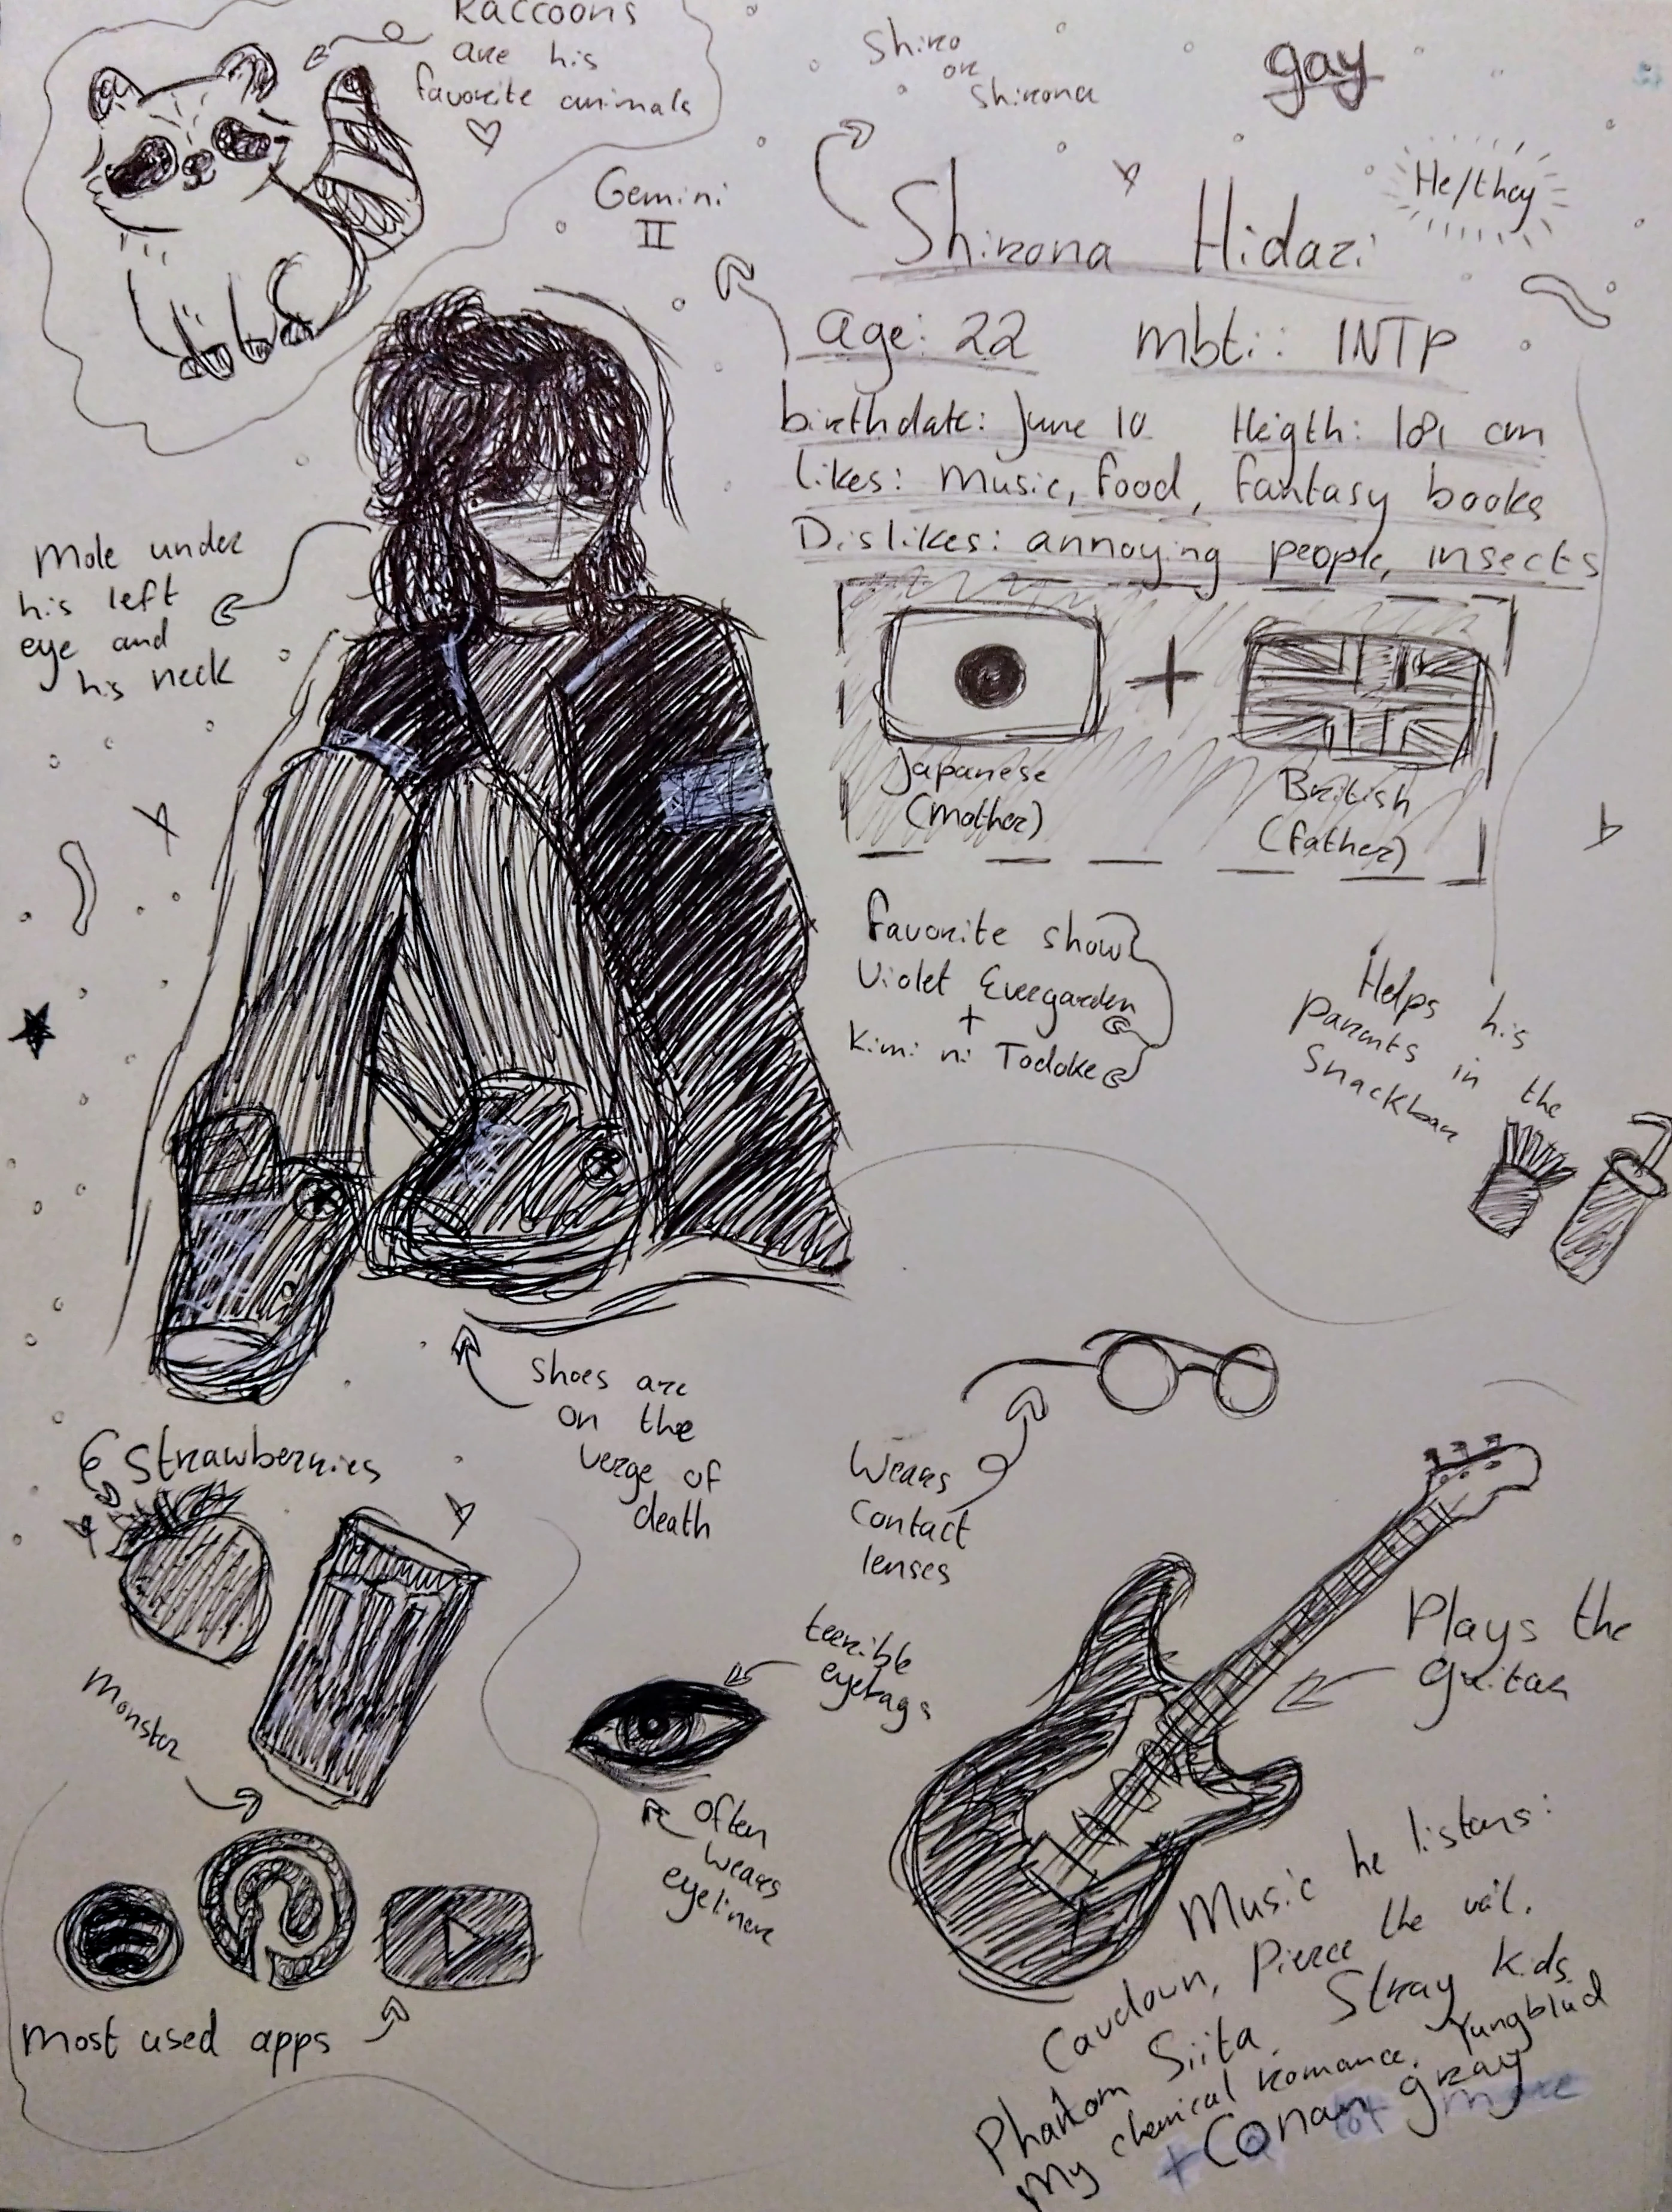 Raccoons
are his
favorite animals
Shiro
or
Shirona
gay
He/they
Gemini
II
Shirona Hidari
age: 22 mbti: INTP
birthdate: June 10 Heigth: 181 cm
likes: music, food, fantasy books
Dislikes: annoying people, insects
Mole under
his left
eye and
his neck
Japanese
(mother)
+
British
(father)
favorite show
Violet Evergarden
+
Kimi ni Todoke
Helps his
parents in the
Snackbar
shoes are
on the
verge of
death
Strawberries
Monster
Wears
contact
lenses
terrible
eyebags
often
wears
eyeliner
Plays the
guitar
most used apps
Music he listens:
Cavetown, Pierce the veil,
Phantom Siita, Stray kids
My chemical romance, Yungblud
+ Conan gray